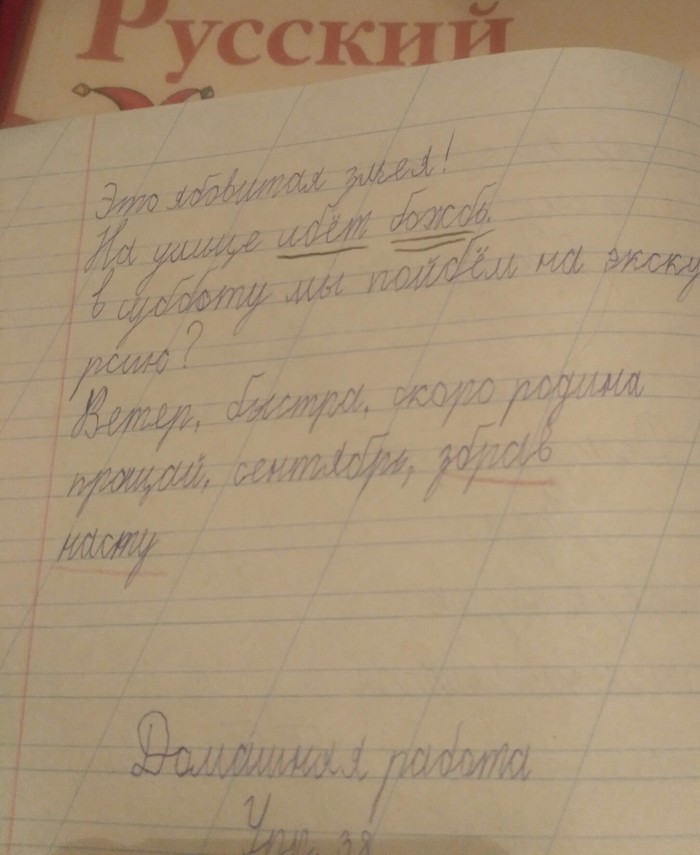 Русский
Это ядовитая змея!
На улице идёт дождь.
в субботу мы пойдём на экску
рсию?
Ветер, быстра, скоро родина
прощай, сентябрь, здрав
насту
Домашная работа
Упр. 38